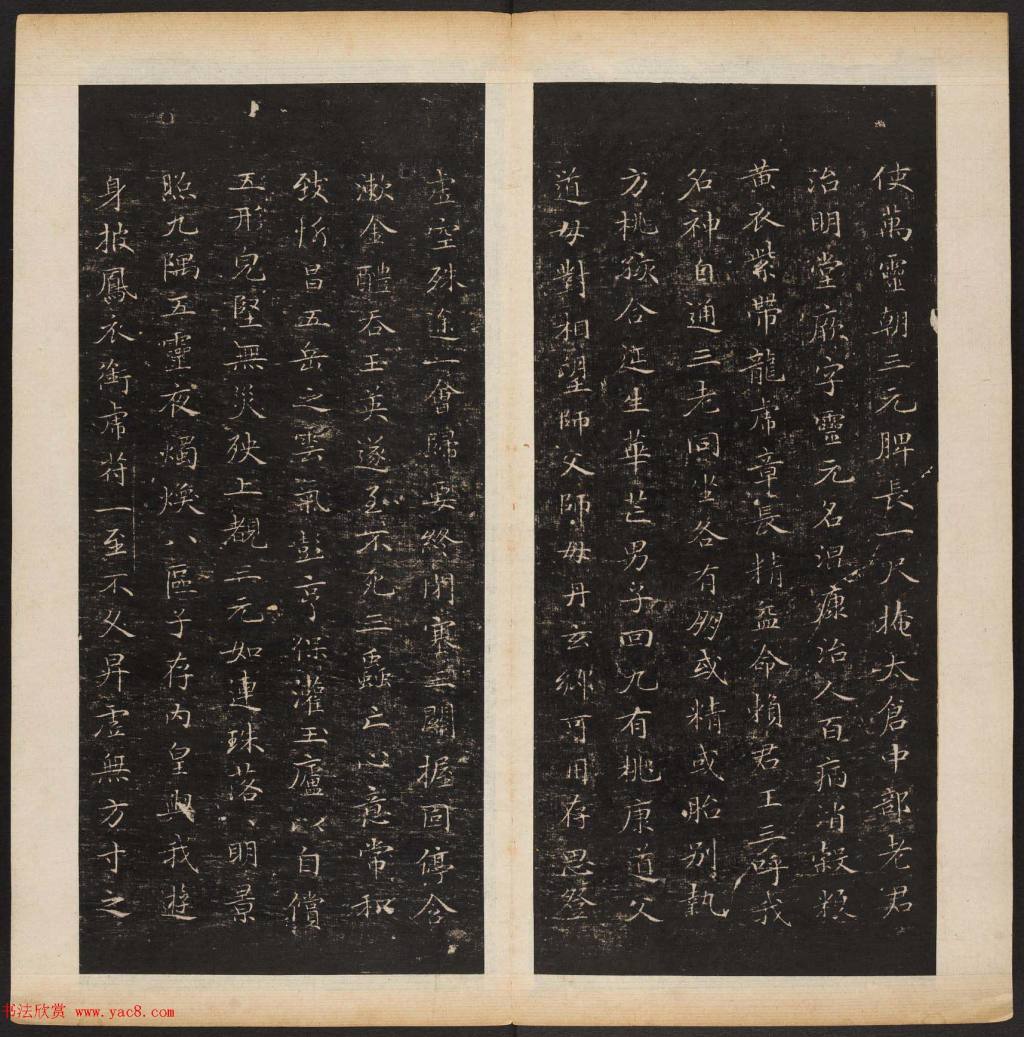 使萬靈朝三元脾長一尺掩太倉中部老君
治明堂厥字靈元名混康治人百病消穀粮
黄衣紫帶龍虎章長精益命賴君王三呼我
名神自通三老同坐各有朋或精或胎别執
方桃孩合延生華芒男子回九有桃康道父
道母對相望師父師母丹玄鄉可用存思登
虚空殊途一會歸要終閉塞三關握固停含
漱金醴吞玉英遂至不死三蟲亡心意常和
致忻昌五岳之雲氣彭亨保灌玉廬以自償
五形完堅無災殃上觀三元如連珠落落明景
照九隅五靈夜燭煥八區子存内皇與我遊
身披鳳衣銜虎符一至不久昇虚無方寸之
书法欣赏 www.yac8.com